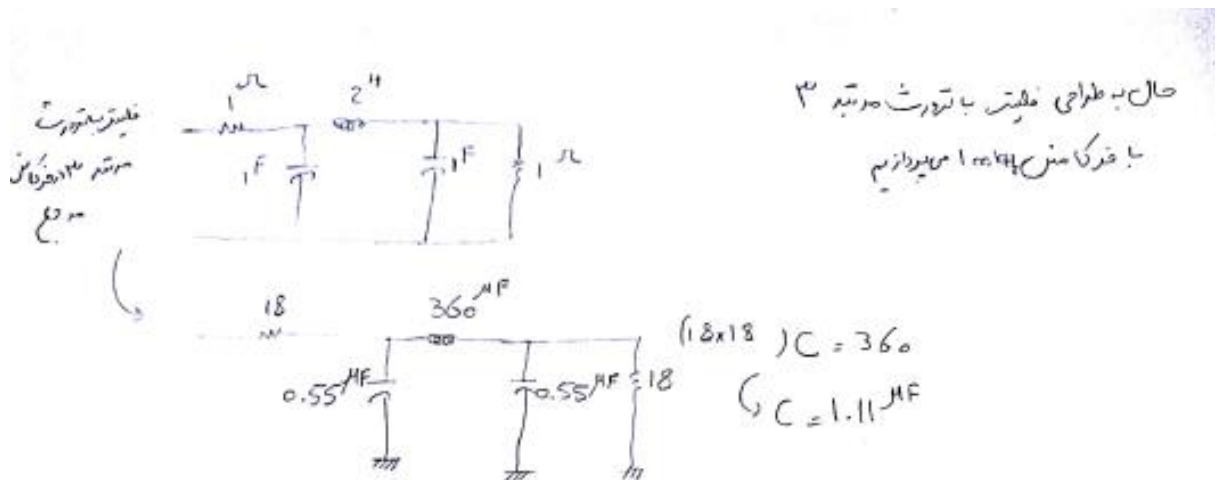 حال به طراحی فیلتر باترورث مرتبه ۳
با فرکانس می‌پردازیم
فیلتر باترورث
مرتبه ۳ در فرکانس
مرجع
1 Ω
2 H
1 F
1 F
1 Ω
18
360 μF
0.55 μF
0.55 μF
18
(18x18 ) C = 360
C = 1.11 μF